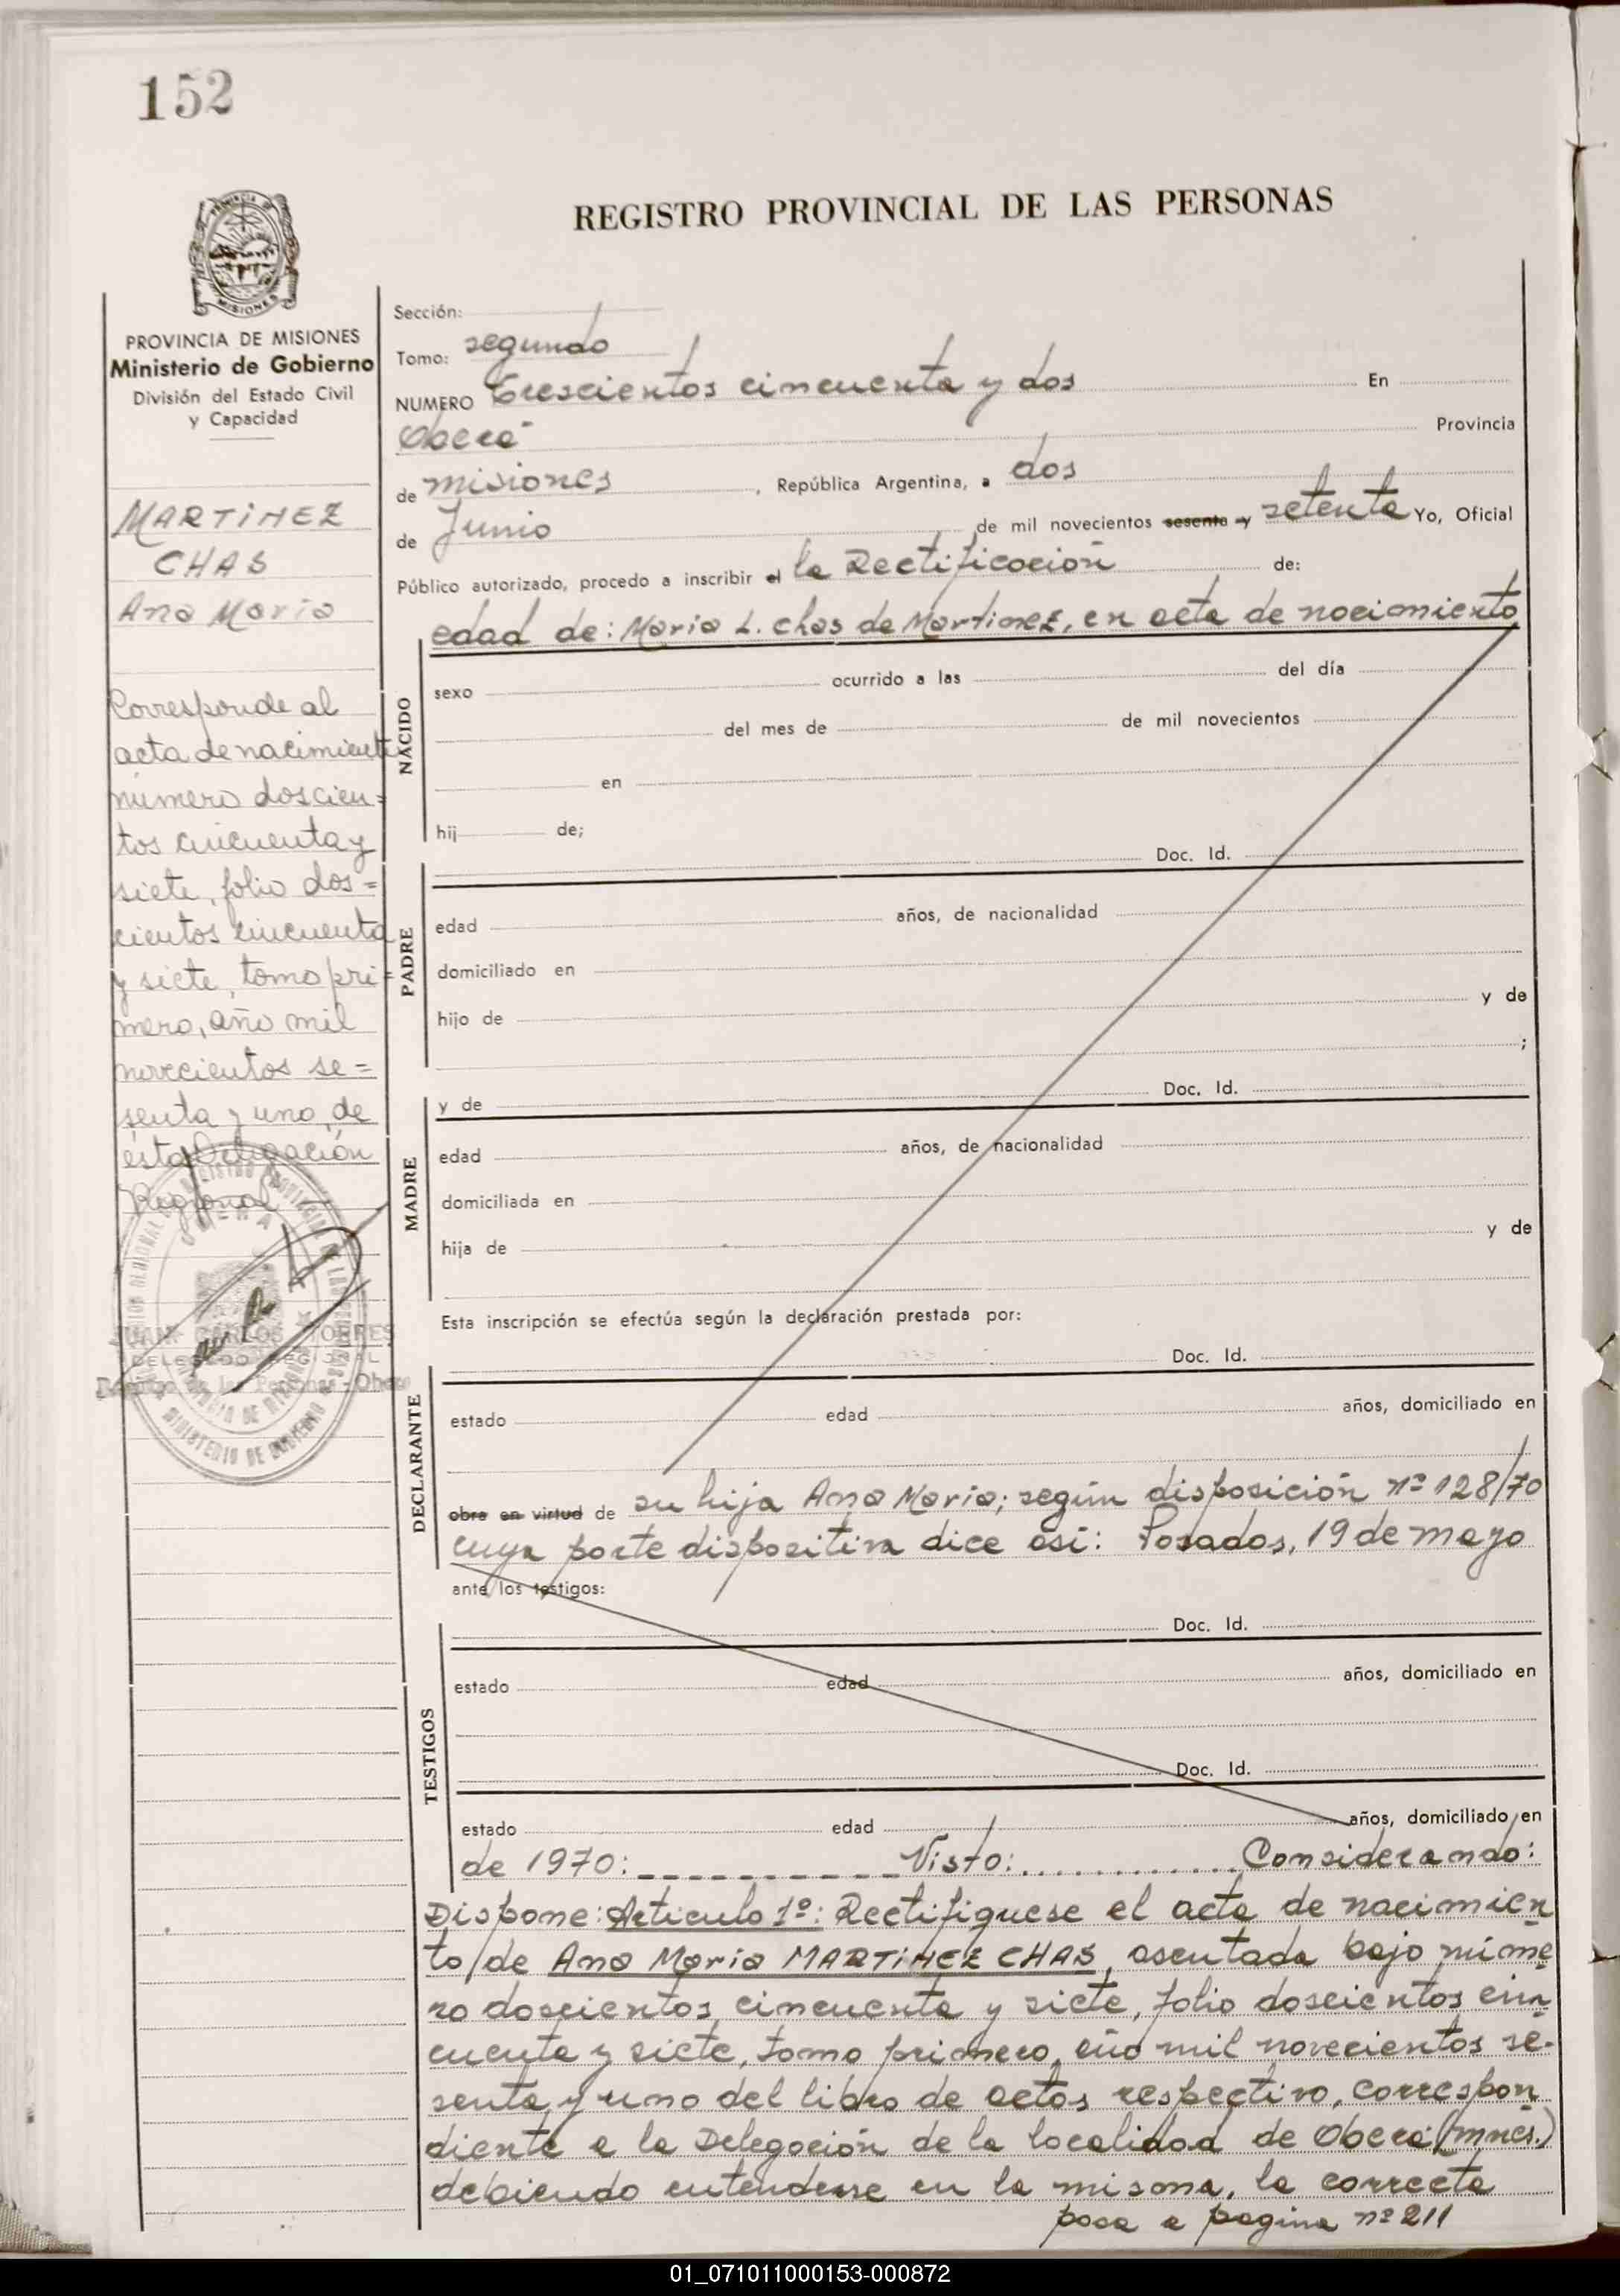 152
REGISTRO PROVINCIAL DE LAS PERSONAS
PROVINCIA DE MISIONES
Ministerio de Gobierno
División del Estado Civil
y Capacidad
MARTINEZ
CHAS
Ana María
Corresponde al
acta de nacimiento
número doscien=
tos cincuenta y
siete, folio dos=
cientos cincuenta
y siete, tomo pri=
mero, año mil
novecientos se=
senta y uno, de
ésta Delegación
Regional
JUAN CARLOS TORRES
DELEGADO REGIONAL
Registro de las Personas - Oberá
MINISTERIO DE GOBIERNO
Sección:
Tomo: segundo
NUMERO Trescientos cincuenta y dos En
Oberá Provincia
de misiones, República Argentina, a dos
de Junio de mil novecientos sesenta y setenta Yo, Oficial
Público autorizado, procedo a inscribir el la Rectificación de:
edad de: María L. Chas de Martinez, en acta de nacimiento
NACIDO
sexo ocurrido a las del día
del mes de de mil novecientos
en
hij de;
Doc. Id.
PADRE
edad años, de nacionalidad
domiciliado en
hijo de y de
;
y de Doc. Id.
MADRE
edad años, de nacionalidad
domiciliada en
hija de y de
Esta inscripción se efectúa según la declaración prestada por:
Doc. Id.
DECLARANTE
estado edad años, domiciliado en
obra en virtud de su hija Ana María; según disposición nº 128/70
cuya parte dispositiva dice así: Posadas, 19 de mayo
ante los testigos:
Doc. Id.
TESTIGOS
estado edad años, domiciliado en
Doc. Id.
estado edad años, domiciliado en
de 1970: _ _ _ _ _ _ _ _ _ _ Visto: ............. Considerando:
Dispone: Artículo 1º: Rectifíquese el acta de nacimien
to/de Ana María MARTINEZ CHAS, asentada bajo núme
ro doscientos cincuenta y siete, folio doscientos cin
cuenta y siete, tomo primero, año mil novecientos se-
senta y uno del libro de actas respectivo, correspon
diente a la Delegación de la localidad de Oberá (mnes.)
debiendo entenderse en la misma, la correcta
pasa a pagina nº 211
01_071011000153-000872